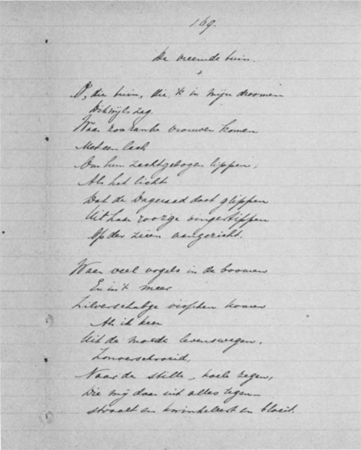 169.
De vreemde tuin.
O, die tuin, die 'k in mijn droomen
Dikwijls zag.
Waar zoo ranke vrouwen komen
Met een lach
Om hun zachtgebogen lippen,
Als het licht
Dat de Dageraad doet glippen
Uit haar roz'ge vingertippen
Op der zeeën aangezicht.
Waar veel vogels in de boomen
En in 't meer
Zilverschubge visschen komen
Als ik keer
Uit de moede levenswegen,
Zonverschroeid,
Naar de stille, koele zegen,
Die mij daar uit alles tegen-
straalt en kwinkeleert en bloeit.